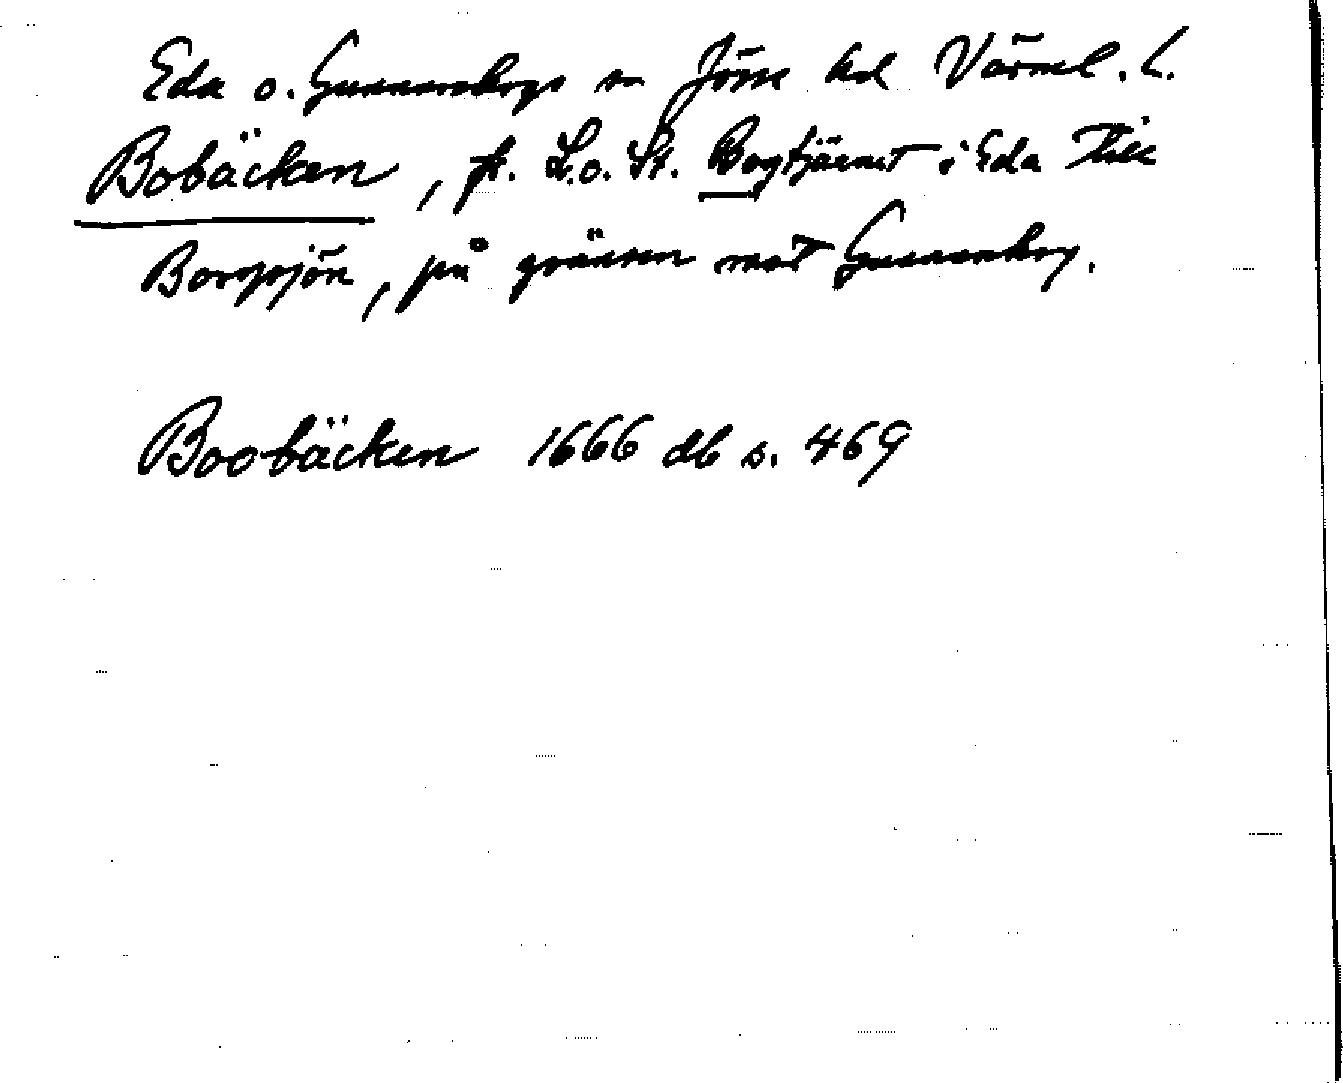 Eda o. Gunnarskogs sn Jösse hd Värml. L.
Bobäcken, fr. L. o. St. Bogtjärnet i Eda till
Borgsjön, på gränsen mot Gunnarskog.
Boobäcken 1666 db s. 469